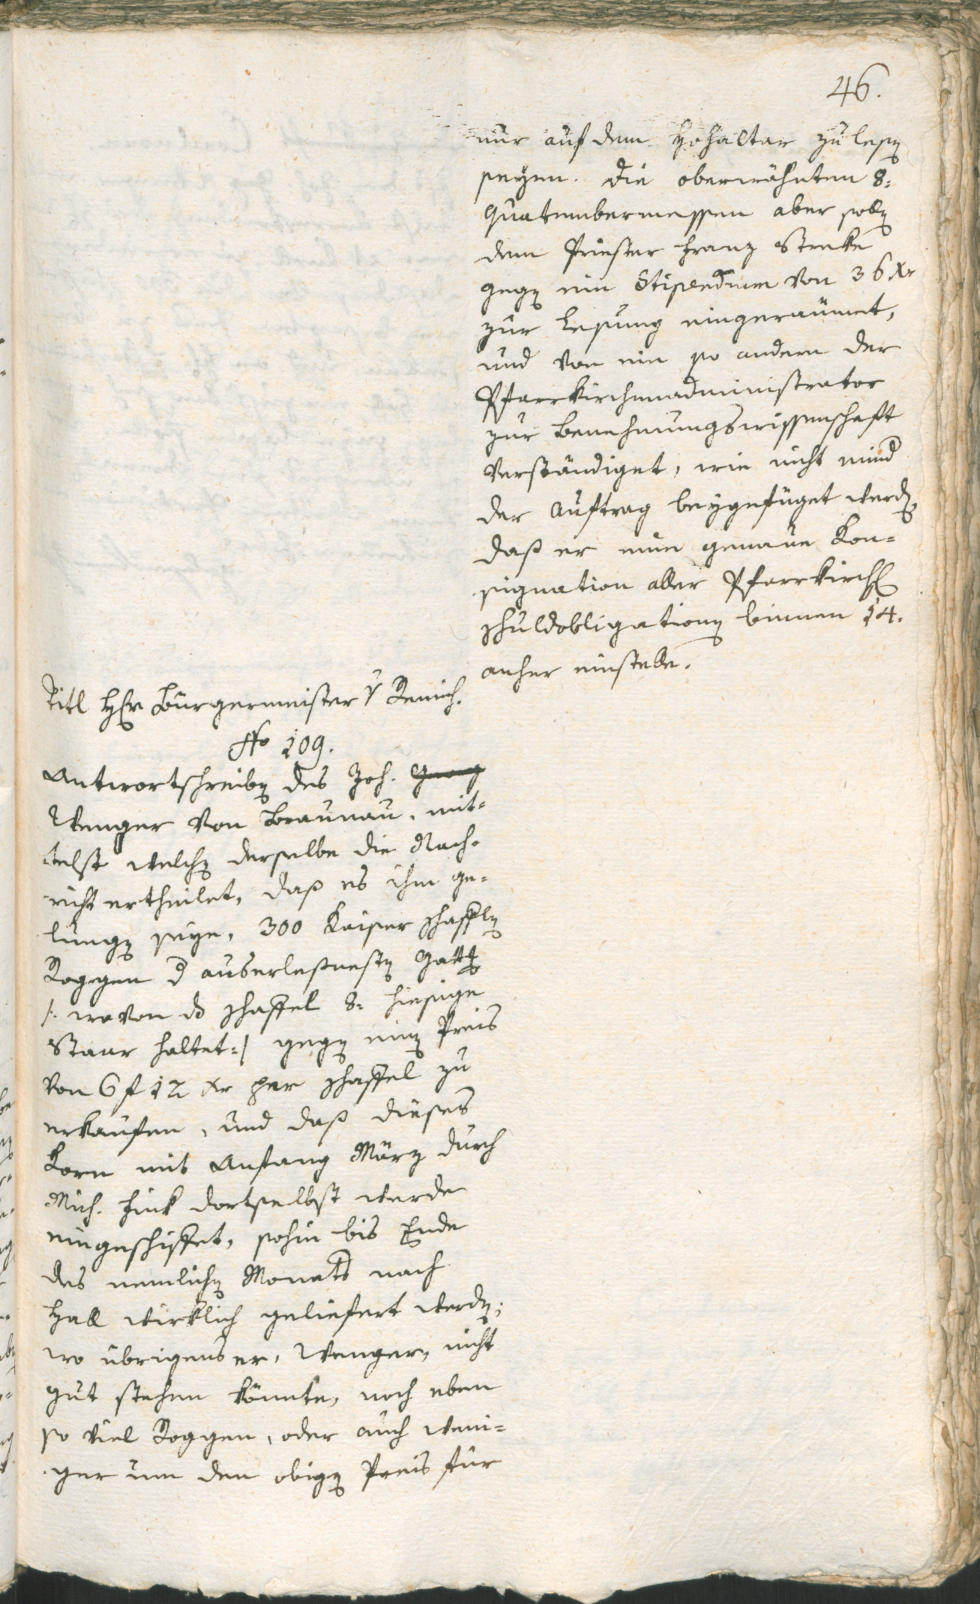 46.
nur auf dem Hohaltar zu lesen
seyen. Die oberwöhnten 8:
Quatembermessen aber solln
dem Priester Franz Strele
gegen ein Stipendium von 36 xr
zur Lesung eingeraumt,
und von ein so andern der
Pfarrkirchenadministrator
zur Benehmungswissenschaft
verständiget, wie nicht mind
der Auftrag beygefüget werden
daß er eine genaue Kon=
signation aller Pfarrkirchen
schuldobligationen binnen 14.
anher einstelle.
Titl Hr Bürgermeister v
No 109.
Antwortschreiben des Joh. Georg
Wenger von Braunau, mit=
telst welchen derselbe die Nach=
richt ertheilet, daß es ihm ge=
lungen seye, 300 Kaiser Schaffeln
Roggen d auserlesnesten Gattung
/: wovon das Schaffel 8: hiesige
Staar haltet :/ gegen einen Preis
von 6 f 12 xr per Schaffel zu
erkaufen, und daß dieses
Korn mit Anfang März durch
Mich. Fink dortselbst werde
eingeschiffet, sohin bis Ende
des nemlichen Monats nach
Hall wirklich geliefert werden;
wo übrigens er, Wenger, nicht
gut stehen könnte, noch eben
so viel Roggen, oder auch weni=
ger um den obigen Preis für